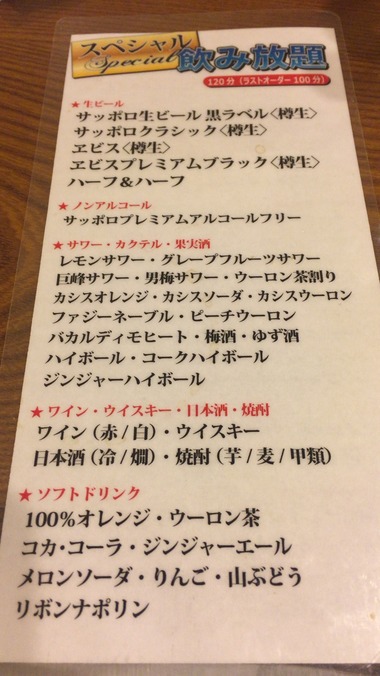 スペシャル
Special
飲み放題
120分（ラストオーダー100分）
★生ビール
サッポロ生ビール 黒ラベル〈樽生〉
サッポロクラシック〈樽生〉
ヱビス〈樽生〉
ヱビスプレミアムブラック〈樽生〉
ハーフ＆ハーフ
★ノンアルコール
サッポロプレミアムアルコールフリー
★サワー・カクテル・果実酒
レモンサワー・グレープフルーツサワー
巨峰サワー・男梅サワー・ウーロン茶割り
カシスオレンジ・カシスソーダ・カシスウーロン
ファジーネーブル・ピーチウーロン
バカルディモヒート・梅酒・ゆず酒
ハイボール・コークハイボール
ジンジャーハイボール
★ワイン・ウイスキー・日本酒・焼酎
ワイン（赤/白）・ウイスキー
日本酒（冷/燗）・焼酎（芋/麦/甲類）
★ソフトドリンク
100%オレンジ・ウーロン茶
コカ・コーラ・ジンジャーエール
メロンソーダ・りんご・山ぶどう
リボンナポリン